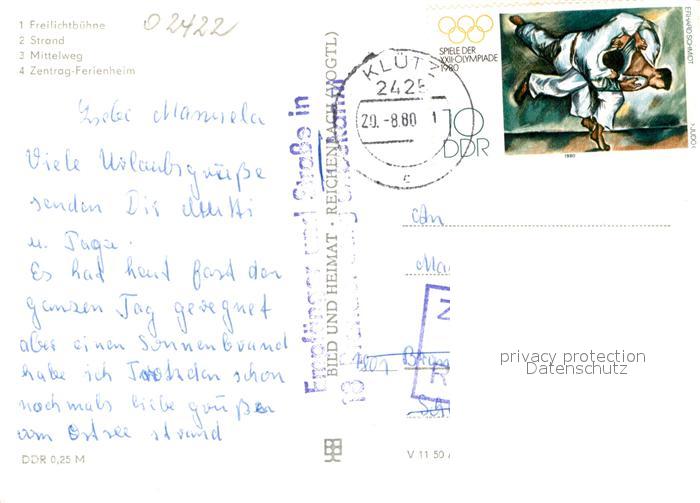 02422
1 Freilichtbühne
2 Strand
3 Mittelweg
4 Zentrag-Ferienheim
Liebe Manuela
Viele Urlaubsgrüße
senden Dir Mutti
u. Papa.
Es hat heut fast den
ganzen Tag geregnet
aber einen Sonnenbrand
habe ich Trotzdem schon
nochmals liebe grüße
am Ostsee strand
DDR 0,25 M
BILD UND HEIMAT · REICHENBACH (VOGTL)
Empfänger und Straße in
KLÜTZ
2425
20.-8.80
1
c
SPIELE DER
XXII. OLYMPIADE
1980
10
DDR
ERHARD SCHMIDT
»JUDO«
1980
An
Ma
Z
R
1801
V 11 50
privacy protection
Datenschutz